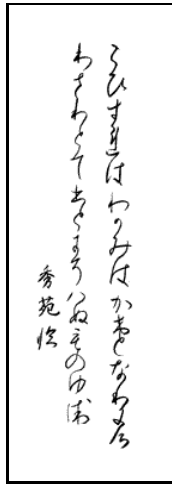 こひすれはわかみはかけとなりにけ
りさりとてひとにそはぬものゆゑ
秀苑臨